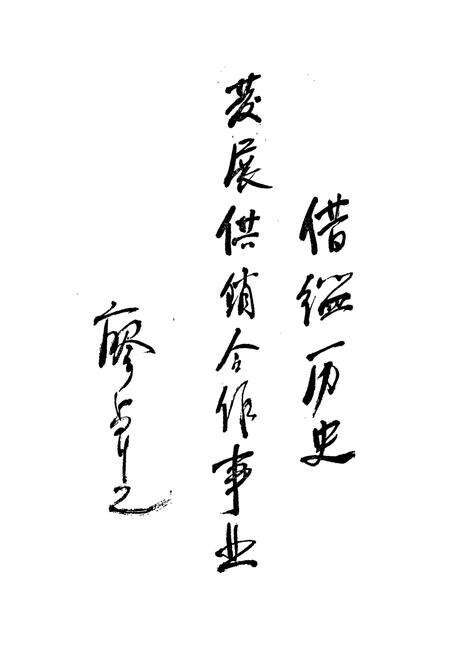 借鑑历史
發展供销合作事业
廖卓之